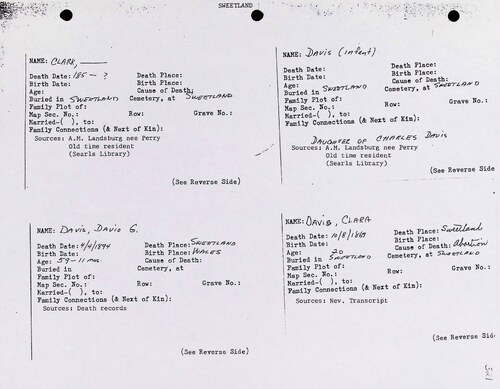 SWEETLAND
NAME: CLARK, ——
Death Date: 185 - ? Death Place:
Birth Date: Birth Place:
Age: Cause of Death:
Buried in SWEETLAND Cemetery, at SWEETLAND
Family Plot of:
Map Sec. No.: Row: Grave No.:
Married-( ), to:
Family Connections (& Next of Kin):
Sources: A.M. Landsburg nee Perry
Old time resident
(Searls Library)
(See Reverse Side)
NAME: DAVIS (infent)
Death Date: Death Place:
Birth Date: Birth Place:
Age: Cause of Death:
Buried in SWEETLAND Cemetery, at SWEETLAND
Family Plot of:
Map Sec. No.: Row: Grave No.:
Married-( ), to:
Family Connections (& Next of Kin):
DAUGHTER OF CHARLES DAVIS
Sources: A.M. Landsburg nee Perry
Old time resident
(Searls Library)
(See Reverse Side)
NAME: DAVIS, DAVID G.
Death Date: 4/4/1894 Death Place: SWEETLAND
Birth Date: Birth Place: WALES
Age: 59-11 mos. Cause of Death:
Buried in Cemetery, at
Family Plot of:
Map Sec. No.: Row: Grave No.:
Married-( ), to:
Family Connections (& Next of Kin):
Sources: Death records
(See Reverse Side)
NAME: DAVIS, CLARA
Death Date: 10/8/1869 Death Place: Sweetland
Birth Date: Birth Place:
Age: 20 Cause of Death: Abortion
Buried in SWEETLAND Cemetery, at SWEETLAND
Family Plot of:
Map Sec. No.: Row: Grave No.:
Married-( ), to:
Family Connections (& Next of Kin):
Sources: Nev. Transcript
(See Reverse Side)